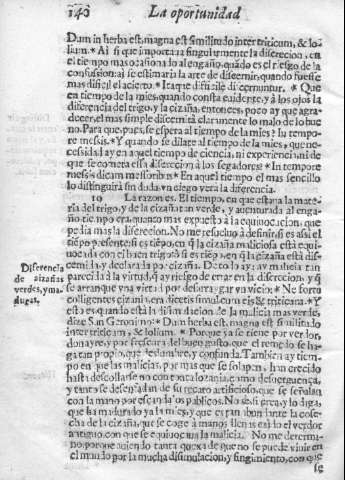 140 La oportunidad
Dum in herba est, magna est similitudo inter triticum, & lo-
lium. * Assi que importara singularmente la discrecion, en
el tiempo mas ocasionado al engaño, quãdo es el riesgo de la
confusion: assi se estimaria la arte de discernir, quando fuesse
mas dificil el acierto. * Itaque dificile discernuntur. * Que
en tiempo de la mies, quando consta euidente, y à los ojos la
diferencia del trigo, y la cizaña, entonces, poco ay que agra-
decer, el mas simple discernirà claramente lo malo de lo bue-
no. Para que, pues, se espera al tiempo de la mies? In tempo-
re messis. * Y quando se dilate al tiempo de la mies, que ne-
cessidad ay en aquel tiempo de ciencia, ni experiencia, ni de
que se cometa essa discrecion à los segadores? * In tempore
messis dicam messoribus * En aquel tiempo el mas sencillo
lo distinguirà sin duda, vn ciego verà la diferencia.
10 La razon es. El tiempo, en que estaua la mate-
ria del trigo, y de la cizaña tan verde, y auenturada al enga-
ño tiempo era, quanto mas expuesto à la equiuocacion, que
pedia mas la discrecion. No me resueluo à definir si es assi el
tiempo presente: si es tiẽpo, en q̃ la cizaña maliciosa està equi-
uocada con el buen trigo: ò si es tiẽpo en q̃ la cizaña està dis-
cernida, y declarada por cizaña. De todo ay: ay malicia tan
parecida à la virtud, q̃ ay riesgo de errar en la discrecion, y q̃
se arranque vna virtud por desarraygar vn vicio: * Ne forte
colligentes cizania, eradicetis simul cum eis & triticum. * Y
esto es quando està la dissimulacion de la malicia mas verde,
dize San Geronimo: * Dum herba est, magna est similitudo
inter triticum, & lolium. * Porque ya se tiene por verdor,
donayre, y por frescura del buen gusto, que el remedo se ha-
ga tan propio, que deslumbre, y confunda. Tambien ay tiem-
po en que las malicias, por mas que se solapen, han crecido
hasta descollarse no con tanta loçania, como desverguença,
y tanto se desengañan de su recato artificioso, que se señalan
con la mano por escandalos publicos. No sabrè creer, lo diga,
que ha madurado ya la mies, y que es tan abundante la cose-
cha de la cizaña, que se coge à manos llenas caido el verdor
antiguo, con que se equiuocaua la malicia. No me determi-
no, porque auiendo tanta quexa de que no se puede viuir en
el mundo por la mucha dissimulacion, y fingimiento, con que
se
Diferencia
de cizañas
verdes, y ma-
duras.